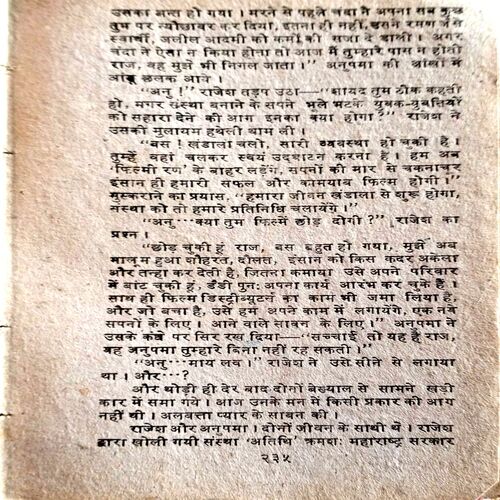 उसका अन्त हो गया । मरने से पहले चंदा ने अपना सब कुछ
तुम पर न्यौछावर कर दिया, इतना ही नहीं, उसने रमण जैसे
स्वार्थी, जलील आदमी को कर्मों की सजा दे डाली । अगर
चंदा ने ऐसा न किया होता तो आज मैं तुम्हारे पास न होती
राज, वह मुझे भी निगल जाता ।" अनुपमा की आंखों में
आंसू छलक आये ।
"अनु !" राजेश तड़प उठा—"शायद तुम ठीक कहती
हो, मगर संस्था बनाने के सपने भूले भटके युवक-युवतियों
को सहारा देने की आग इनका क्या होगा ?" राजेश ने
उसकी मुलायम हथेली थाम ली ।
"बस ! खंडाला चलो, सारी व्यवस्था हो चुकी है ।
तुम्हें वहां चलकर स्वयं उदघाटन करना है । हम अब
'फिल्मी रण' के बाहर लड़ेंगे, सपनों की मार से चकनाचूर
इंसान ही हमारी सफल और कामयाब फिल्म होगी ।"
मुस्कराने का प्रयास, "हमारा जीवन खंडाला से शुरू होगा,
संस्था को तो हमारे प्रतिनिधि चलायेंगे ।"
"अनु···क्या तुम फिल्में छोड़ दोगी ?" राजेश का
प्रश्न ।
"छोड़ चुकी हूं राज, बस बहुत हो गया, मुझे अब
मालूम हुआ शौहरत, दौलत, इंसान को किस कदर अकेला
और तन्हा कर देती है, जितना कमाया उसे अपने परिवार
में बांट चुकी हूं, डैडी पुनः अपना कार्य आरंभ कर चुके हैं ।
साथ ही फिल्म डिस्ट्रीब्यूटर्न का काम भी जमा लिया है,
और जो बचा है, उसे हम अपने काम में लगायेंगे, एक नये
सपनों के लिए । आने वाले सावन के लिए ।" अनुपमा ने
उसके कंधे पर सिर रख दिया—"सच्चाई तो यह है राज,
यह अनुपमा तुम्हारे बिना नहीं रह सकती ।"
"अनु···माय लव ।" राजेश ने उसे सीने से लगाया
था । और···?
और थोड़ी ही देर बाद दोनों बेख्याल से सामने खड़ी
कार में समा गये । आज उनके मन में किसी प्रकार की आग
नहीं थी । अलबत्ता प्यार के सावन की ।
राजेश और अनुपमा । दोनों जीवन के साथी थे । राजेश
द्वारा खोली गयी संस्था 'अतिथि' क्रमशः महाराष्ट्र सरकार
२३५